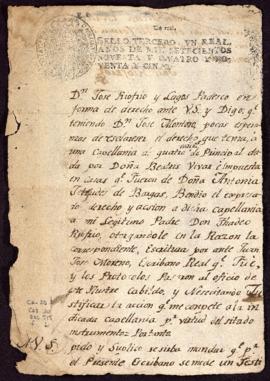 Un real.
SELLO TERCERO, VN REAL,
AÑOS DE MIL SETECIENTOS
NOVENTA Y QUATRO Y NO-
VENTA Y CINCO.
Dn. Jose Riofrio y
forma de derecho ante VS. y Digo: qe.
teniendo Dn. Jose Montero, pocas esperan-
zas de el derecho que tenia, a
una Capellania a quatro mil de Principal
da pa. Doña Beatris Vivas é impuesta
en casas qe. fueron de Doña Antonia
de Bargas, Bendió el expresa-
do derecho y accion a dicha Capellania
a mi Legitimo Padre Don
Riofrio, otorgandole en la Razon la
correspondiente, Escritura por ante Juan
Jose Moreno, Escribano Real qe. fue,
y los Protocolos Pasaron al oficio de
este Ilustre Cabildo, y Necesitando Jus-
tificar la accion qe. me compete á la in-
dicada capellania pr. virtud del sitado
instrumento: Por tanto
A VS. pido y Suplico se sirba mandar qe. pr.
el Presente Escribano se me dé un Testi-